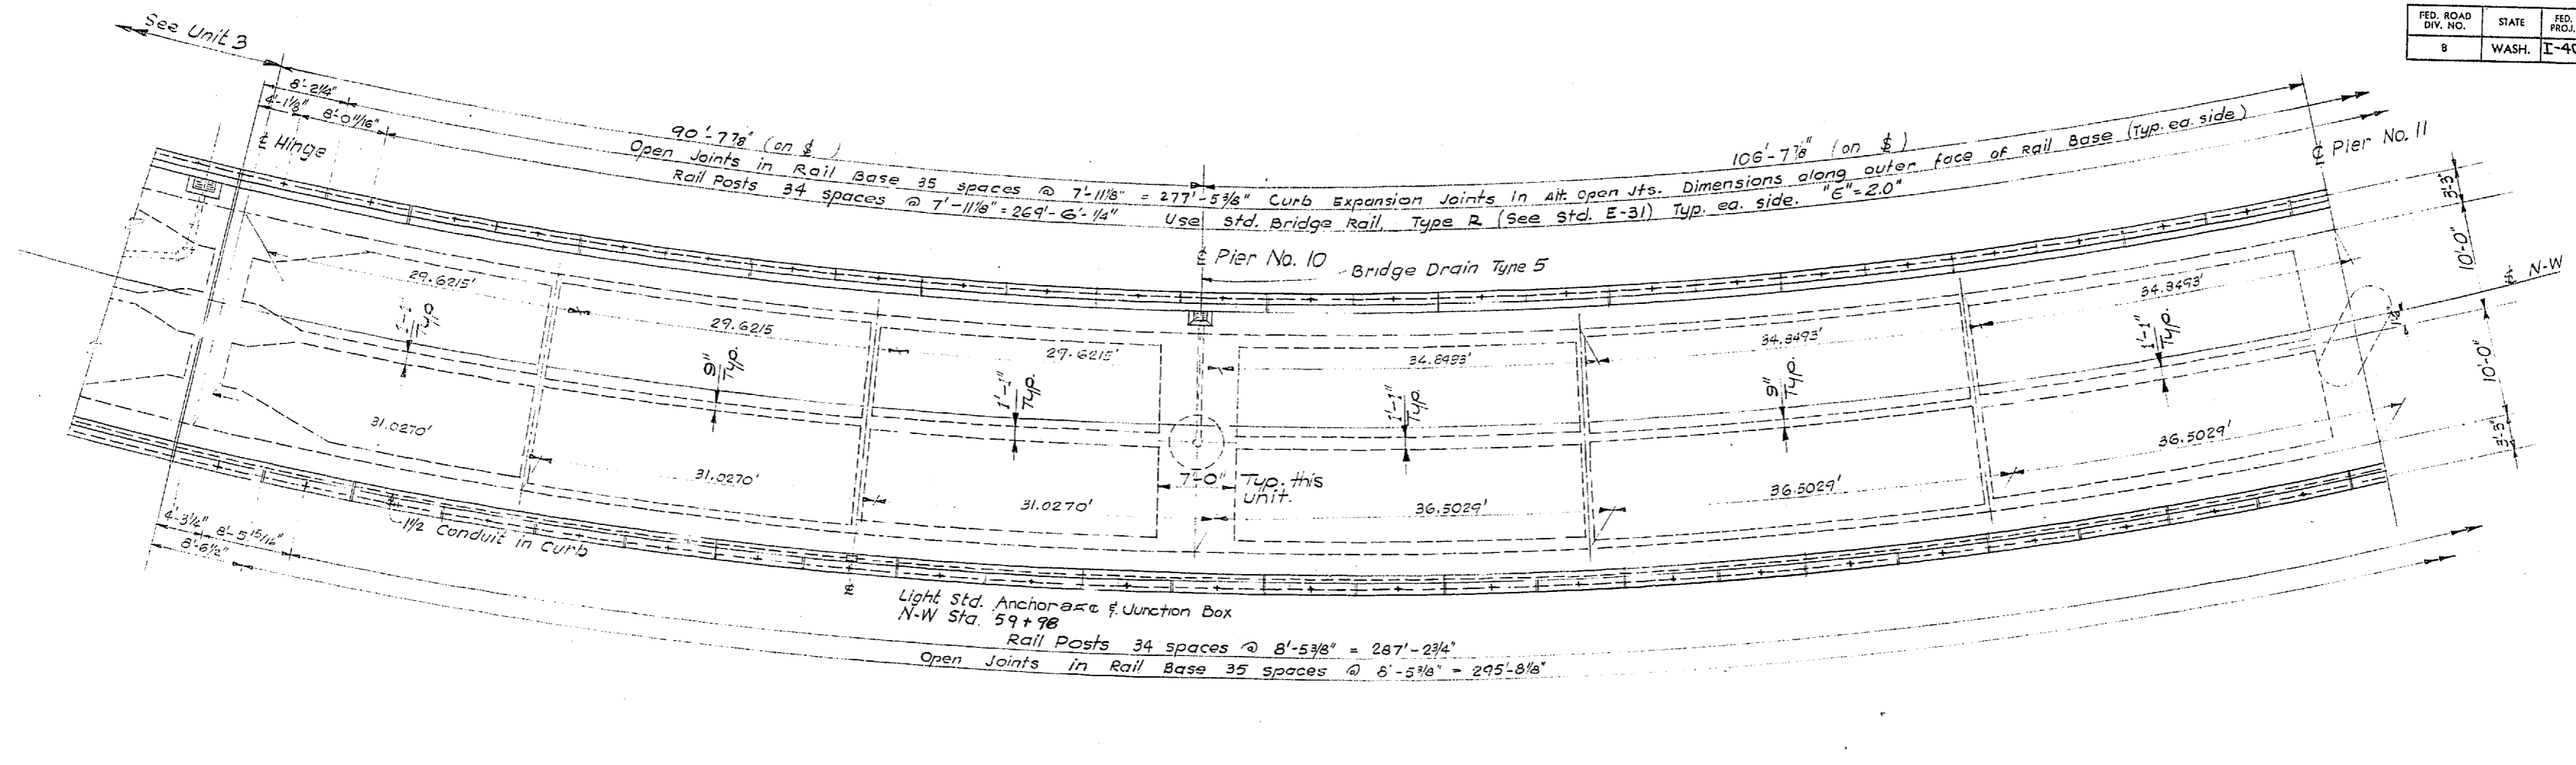 FED. ROAD DIV. NO. STATE FED. PROJ.
8 WASH. I-40
See Unit 3
8'-2¼"
4'-1⅛" 8'-0 11/16"
℄ Hinge
90'-7⅞" (on $ )
106'-7⅞" (on $ )
Open Joints in Rail Base 35 spaces @ 7'-11⅛" = 277'-5⅜" Curb Expansion Joints in Alt. Open Jts. Dimensions along outer face of Rail Base (Typ. ea. side)
Rail Posts 34 spaces @ 7'-11⅛" = 269'-6-¼" Use Std. Bridge Rail, Type R (See Std. E-31) Typ. ea. side. "E"=2.0"
℄ Pier No. 11
℄ Pier No. 10
Bridge Drain Type 5
3'-3"
10'-0"
N-W
10'-0"
3'-3"
29.6215'
29.6215
29.6215'
34.8493'
34.8493'
34.8493'
1'-1" Typ.
9" Typ.
1'-1" Typ.
1'-1" Typ.
9" Typ.
1'-1" Typ.
31.0270'
31.0270'
31.0270'
7'-0" Typ. this
unit.
36.5029'
36.5029'
36.5029'
4'-3¼" 8'-5 15/16"
8'-6½"
1½ Conduit in Curb
℄
Light Std. Anchorage & Junction Box
N-W Sta. 59+98
Rail Posts 34 spaces @ 8'-5⅜" = 287'-2¾"
Open Joints in Rail Base 35 spaces @ 8'-5⅜" = 295'-8⅛"